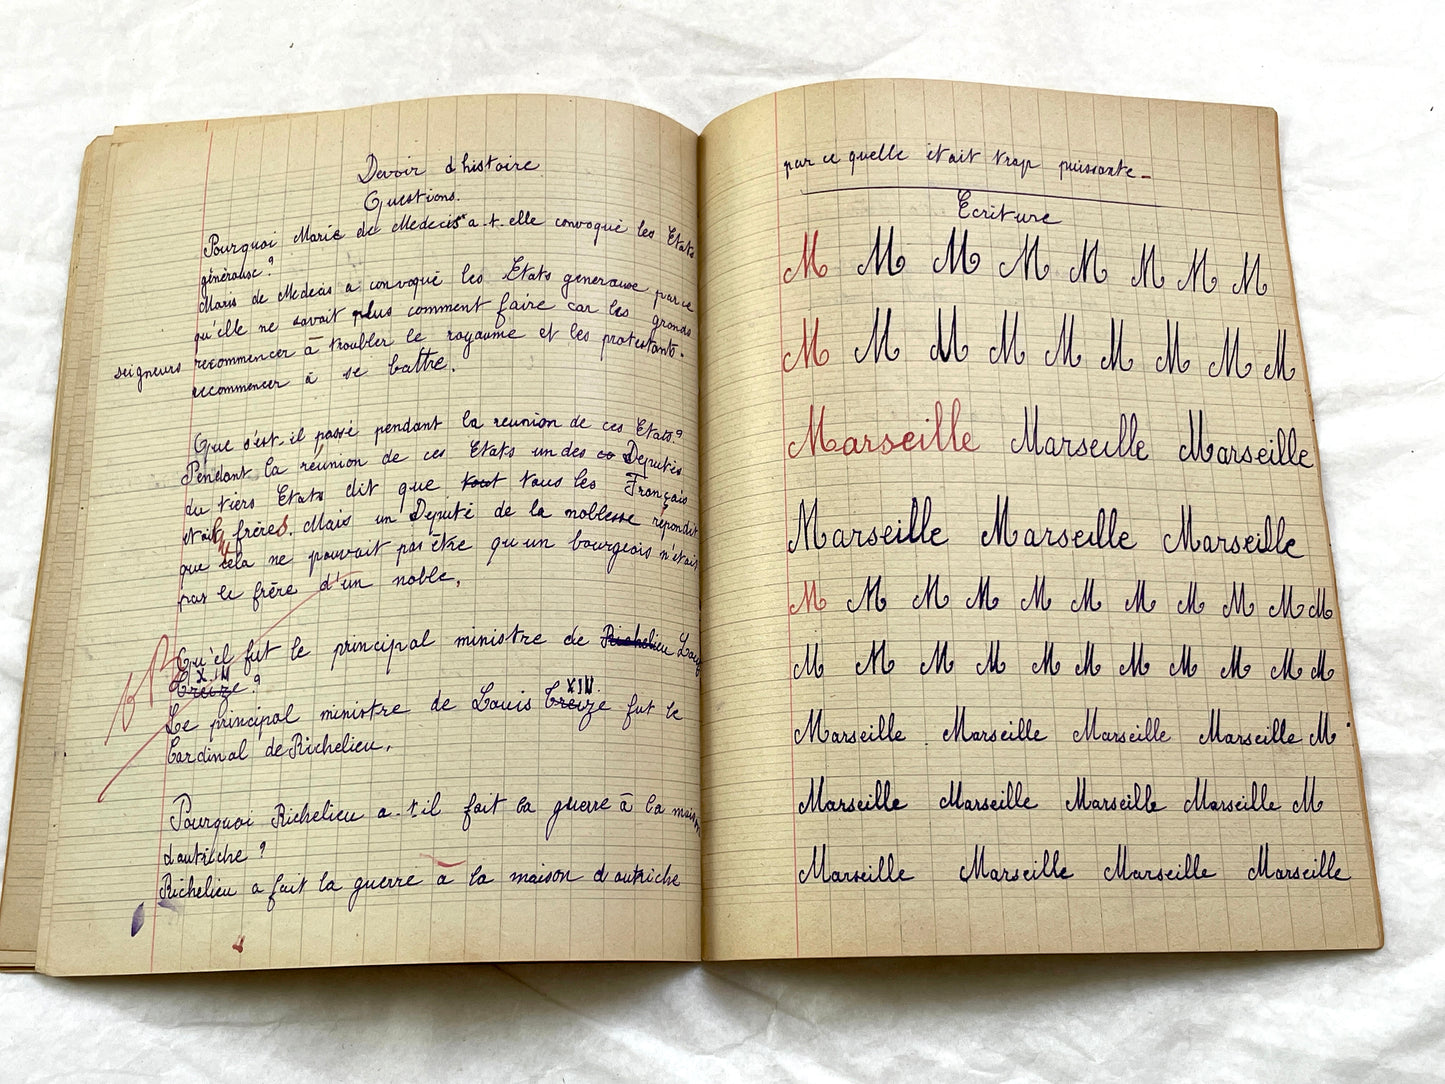 Devoir d'histoire
Questions.
Pourquoi Marie de Medecis a-t-elle convoqué les Etats
généraux ?
Maris de Medecis a convoqué les Etats generause parce
qu'elle ne savait plus comment faire car les grands
seigneurs recommencer à troubler le royaume et les protestants.
recommencer à se battre.
Que s'est-il passé pendant la reunion de ces Etats ?
Pendant la réunion de ces Etats un des co Deputés
du tiers Etats dit que tout tous les Français
était frères. Mais un Députè de la noblesse répondit
que cela ne pouvait pas être qu'un bourgeois n'etait
pas le frère d'un noble.
Qu'el fut le principal ministre de Richelieu Louis
Treize XIII ?
Le principal ministre de Louis Treize XIII. fut le
Cardinal de Richelieu.
Pourquoi Richelieu a-t-il fait la guerre à la maison
d'autriche ?
Richelieu a fait la guerre à la maison d'autriche
par ce quelle était trop puissante_
Ecriture
M M M M M M M M
M M M M M M M M M
Marseille Marseille Marseille
Marseille Marseille Marseille
M M M M M M M M M M M
M M M M M M M M M M M
Marseille Marseille Marseille Marseille M
Marseille Marseille Marseille Marseille M
Marseille Marseille Marseille Marseille